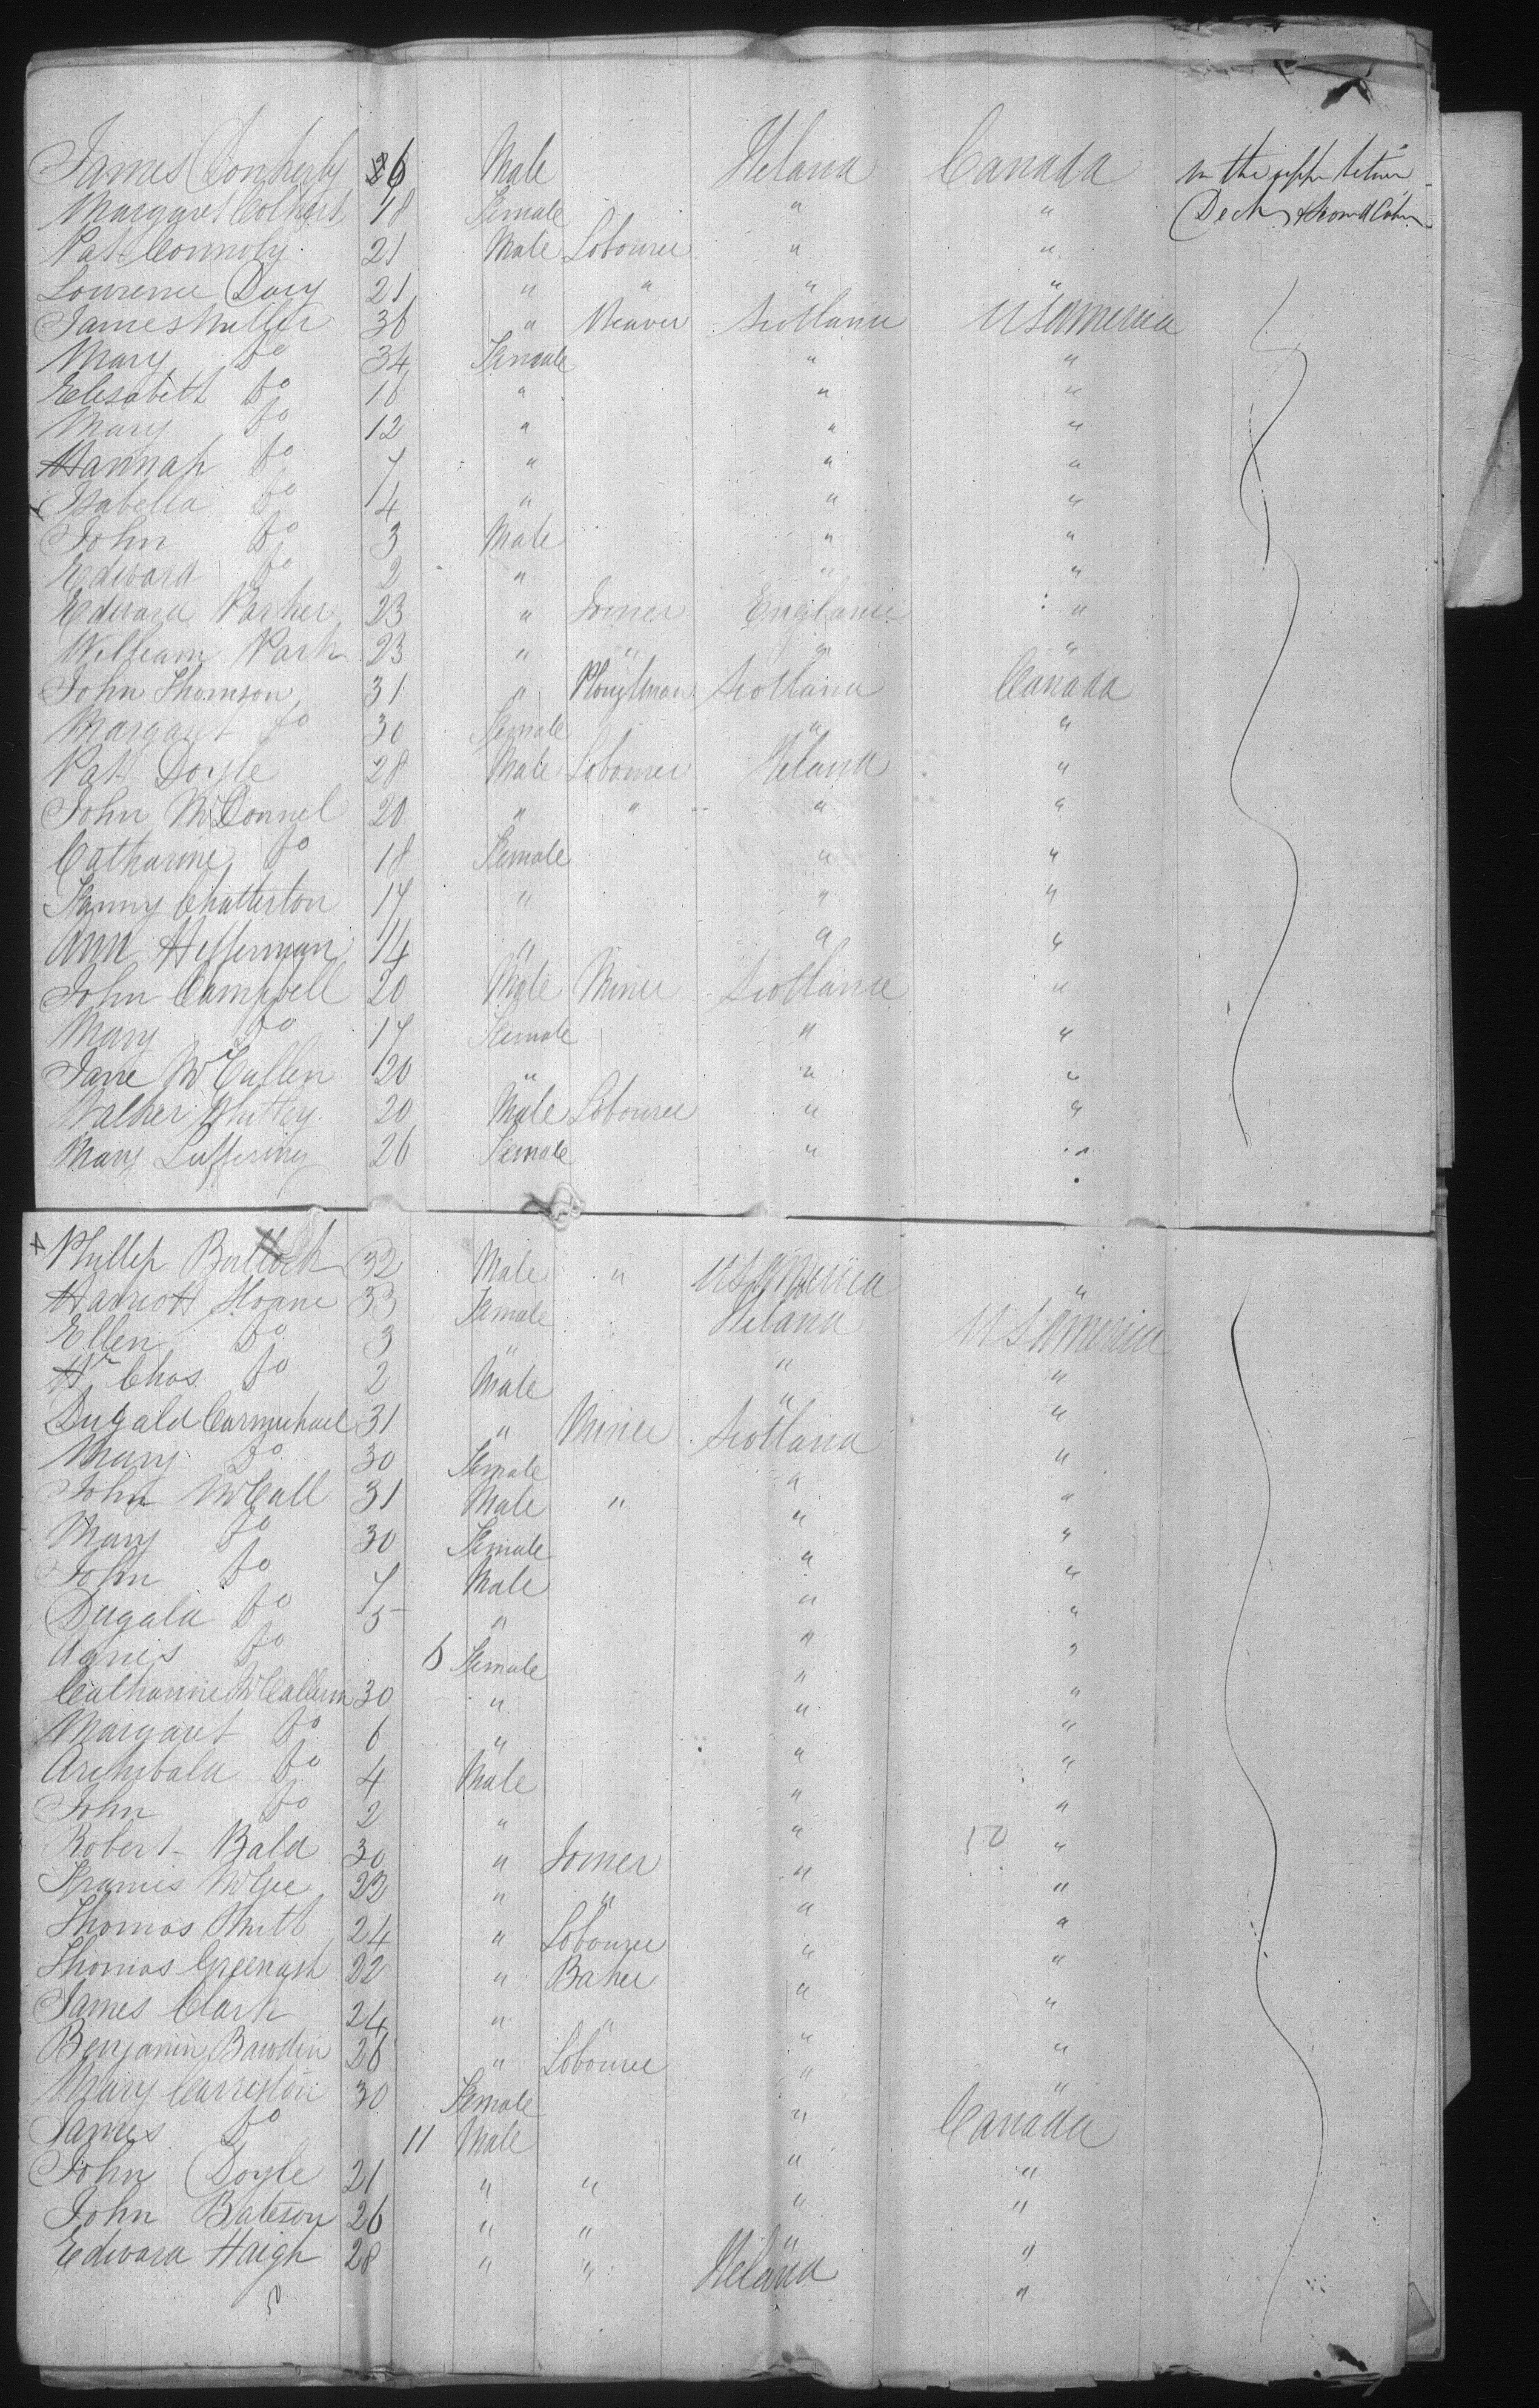 James Conherly 26 Male Ireland Canada In the upper between
Margaret Colbert 18 Female " " Deck & Second Cabin
Pat Connoly 21 Male Labourer " "
Lourence Davy 21 " " " "
James Miller 36 " Weaver Scotland U S America
Mary Do 34 Female " "
Elisabeth Do 16 " " "
Mary Do 12 " " "
Hannah Do 7 " " "
Isabella Do 4 " " "
John Do 3 Male " "
Edward Do 2 " " "
Edward Parker 23 " Joiner England "
William Park 23 " " " "
John Thomson 31 " Ploughman Scotland Canada
Margaret Do 30 Female " "
Patt Doyle 28 Male Labourer Ireland "
John McDonnel 20 " " " "
Catharine Do 18 Female " "
Fanny Chatterton 17 " " "
Ann Hefferman 14 " " "
John Campbell 20 Male Miner Scotland "
Mary Do 17 Female " "
Jane McCallen 20 " " "
Walker Whitley 20 Male Labourer " "
Mary Luffering 26 Female " "
Phillip Bullock 32 Male " U S America "
Harriott Sloane 33 Female Ireland U S America
Ellen Do 3 " " "
Hy Chas Do 2 Male " "
Dugald Carmichael 31 " Miner Scotland "
Mary Do 30 Female " "
John McCall 31 Male " " "
Mary Do 30 Female " "
John Do 7 Male " "
Dugald Do 5 " " "
Agnes Do 6 Female " "
Catharine McCallum 30 " " "
Margaret Do 6 " " "
Archibald Do 4 Male " "
John Do 2 " " "
Robert Bald 30 " Joiner " 50 "
Francis McGee 22 " " " "
Thomas Mutt 24 " Labourer " "
Thomas Greenash 22 " Baker " "
James Clark 24 " " " "
Benjamin Bawdin 26 " Labourer " "
Mary Carreston 30 Female " Canada
James Do 11 Male " "
John Doyle 21 " " " "
John Bateson 26 " " " "
Edward Haigh 28 " " Ireland "